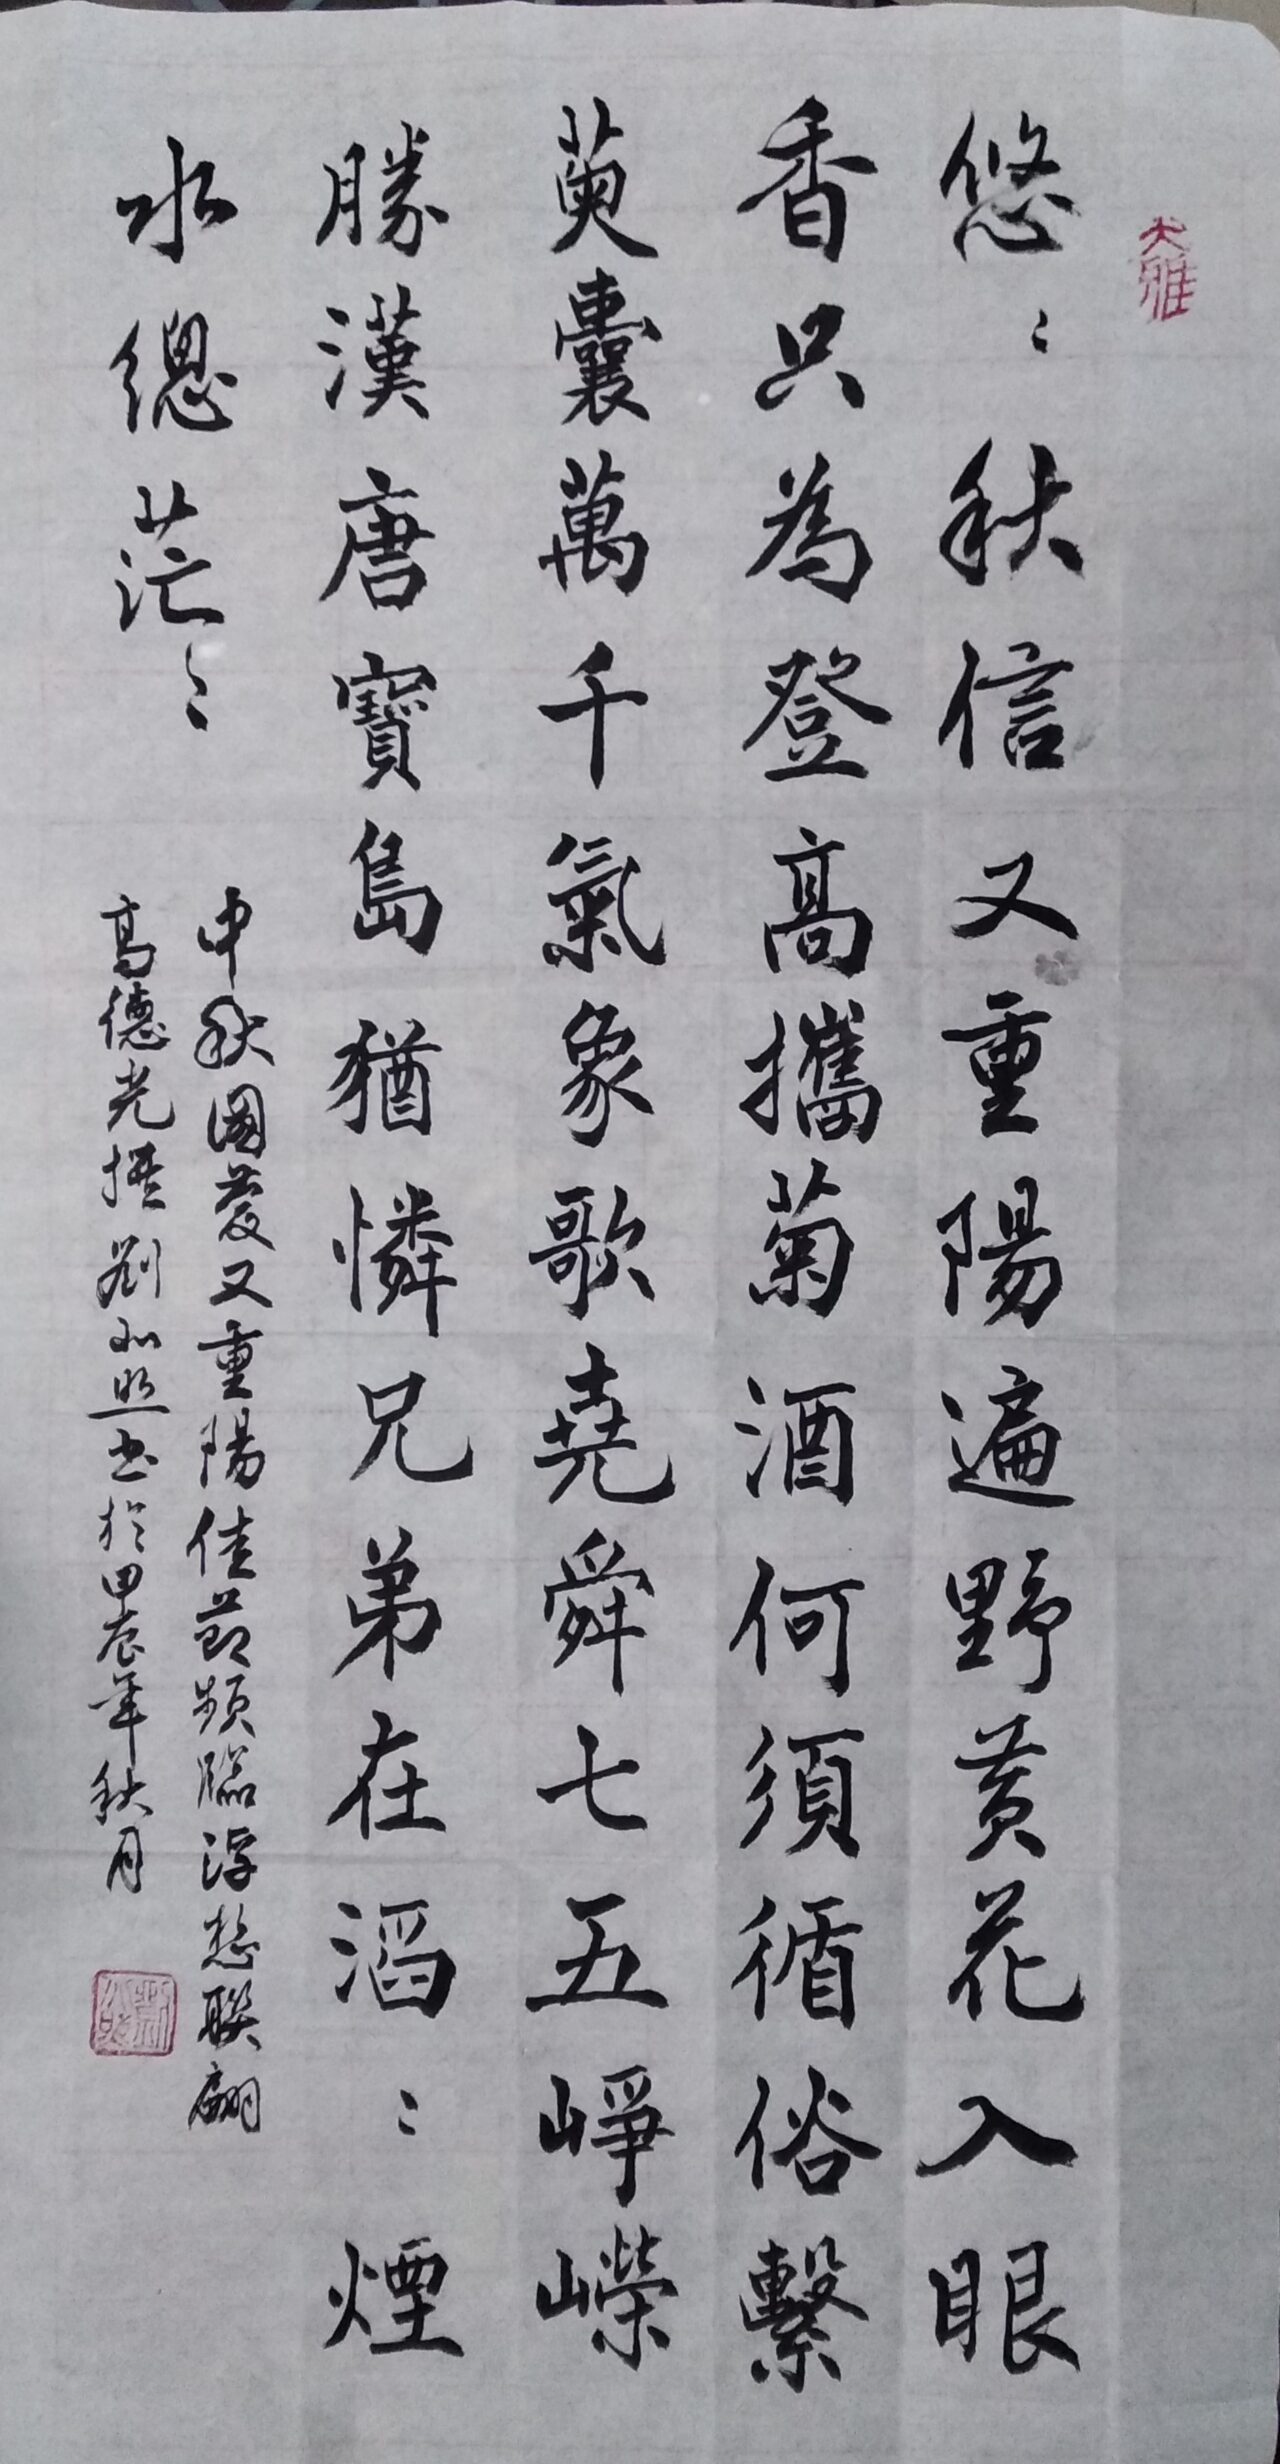 大雅
悠〻秋信又重陽遍野黄花入眼
香只為登高攜菊酒何須循俗繫
萸囊萬千氣象歌堯舜七五崢嶸
勝漢唐寶島猶憐兄弟在滔〻煙
水總茫〻
中秋國慶又重陽佳節頻臨浮想聯翩
高德光撰劉照书於甲辰年秋月